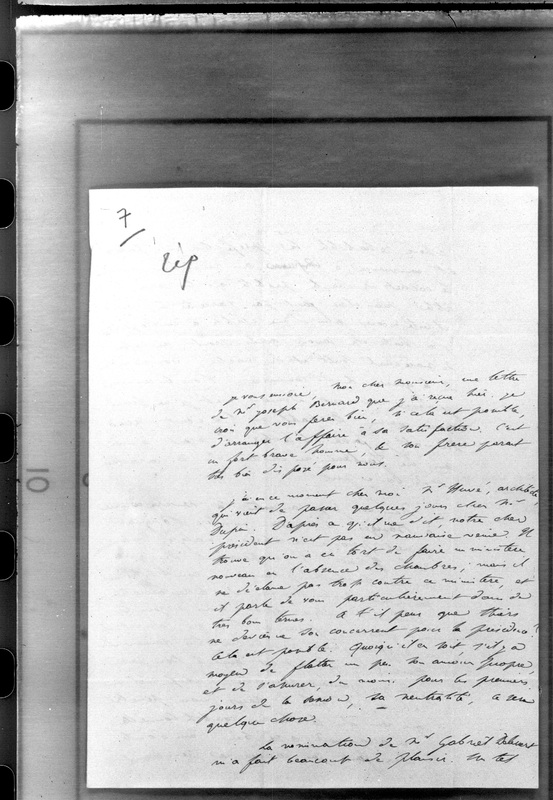 7
rép
je vous envoie, mon cher monsieur, une lettre
de Mr Joseph Bernard que j'ai reçue hier. je
crois que vous ferez bien, si cela est possible,
d'arranger l'affaire à sa satisfaction. C'est
un fort brave homme, et son frère parait
très bien disposé pour nous.
j'ai en ce moment chez moi Mr Huvé, architecte,
qui vient de passer quelques jours chez Mr
Dupin. D'après ce qu'il me dit, notre cher
président n'est pas en mauvaise veine. Il
trouve qu'on a eu tort de faire un ministère
nouveau en l'absence des chambres; mais il
ne déclame pas trop contre ce ministère, et
il parle de vous particulièrement dans de
très bons termes. A-t-il peur que Thiers
ne devienne son concurrent pour la présidence?
Cela est possible. Quoiqu'il en soit s'il y a
moyen de flatter un peu son amour propre,
et de s'assurer, du moins pour les premiers
jours de la session, sa neutralité, ce sera
quelque chose.
La nomination de Mr Gabriel Delessert
m'a fait beaucoup de plaisir. Un tel